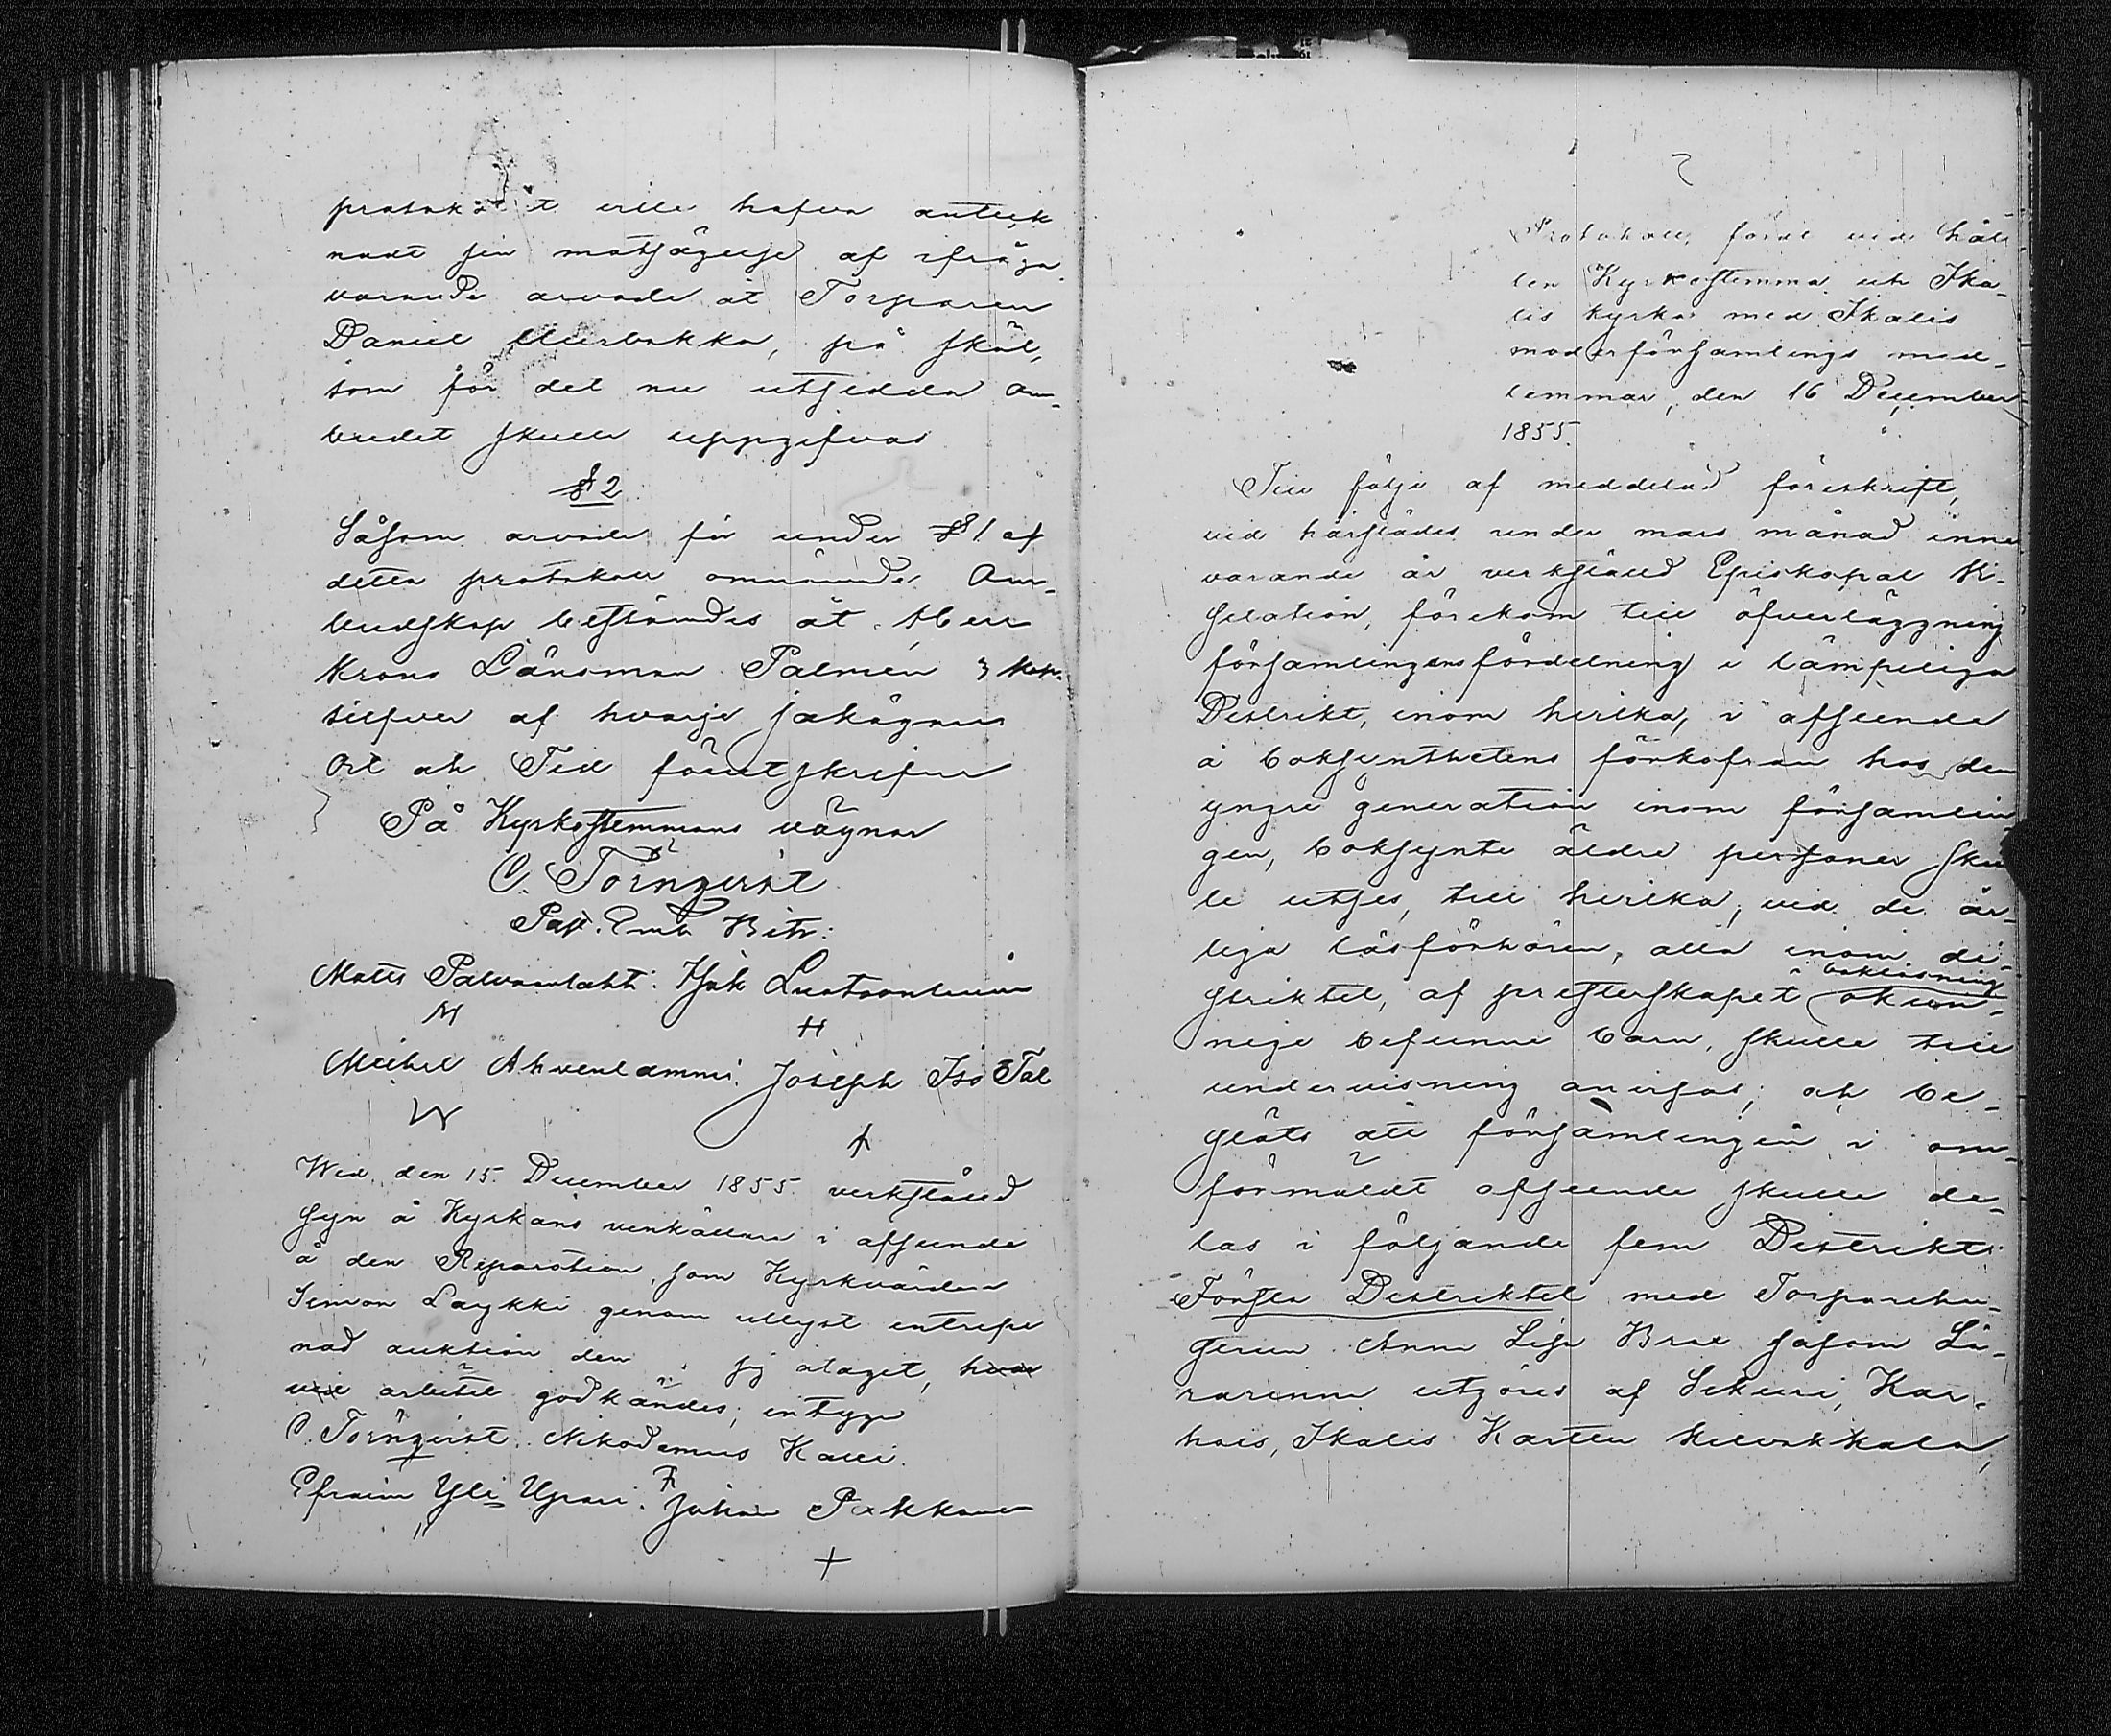 protokollet ville hafva anteck
nadt sin motsägelse af ifråga
varande arvode åt Torparen
Daniel Uusbakka, på skäl,
som för det nu utsedda om-
budet skulle uppgifvas
§ 2
Såsom arvode för under § 1 af
detta protokoll omnämnde Om-
budskap bestämdes åt Herr
Krono Länsman Palmén 3 kop.
silfver af hvarje sakägare
Ort och Tid förutskrifne
På Kyrkostemmans vägnar
C. Törnqvist
Past. Emb Bitr:
Matts Palvanlahti. Isak Luotoonlumi
Michel Ahvenlammi. Joseph Iso Tal
Wid den 15. December 1855. verkstäld
syn å Kyrkans venkällare i afseende
å den Reparation, som Kyrkvärden
Simon Laykki genom ullyst entrepe
nad auktion den sig åtagit, hvar
vid arbetet godkändes; intyga
C. Törnqvist. Nikodemus Kalli.
Efraim Yli Uppari. Johan Pakkanen
Protokoll, fördt vid hål-
len Kyrkostemma uti Ika-
lis kyrka med Ikalis
moderförsamlings med-
lemmar, den 16 December
1855.
Till följe af meddelad föreskrift,
vid härstädes under mars månad inne
varande år verkstäld Episkopal Vi-
sitation, förekom till öfverläggning
församlingens fördelning i lämpeliga
Distrikt, inom hvilka, i afseende
å boksynthetens förkofran hos den
yngre generation inom församlin
gen, boksynte äldre personer skul
le utses, till hvilka, vid de år-
liga läsförhören, alla inom di-
striktet, af presterskapet i bokläsning okun-
nige befunne barn, skulle till
undervisning anvisas; och be-
slöts att församlingen i om-
förmäldt afseende skulle de-
las i följande fem Distrikt:
Första Distriktet med Torparehu-
strun Anna Lisa Brax såsom Lä-
rarinna utgöres af Sikuri, Kar-
hois, Ikalis Kartu Kilvakkala,